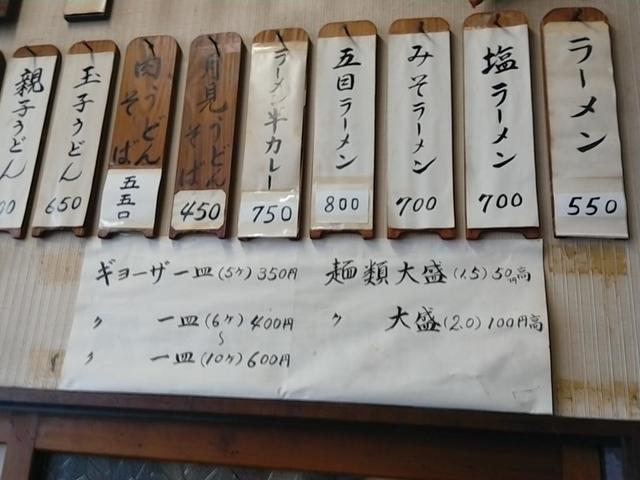 ラーメン
550
塩ラーメン
700
みそラーメン
700
五目ラーメン
800
ラーメン半カレー
750
月見うどん
そば
450
肉うどん
そば
五五〇
玉子うどん
650
親子うどん
00
ギョーザ一皿(5ケ)350円
〃 一皿(6ケ)400円
〜
〃 一皿(10ケ)600円
麺類大盛(1.5)50円高
〃 大盛(2.0)100円高